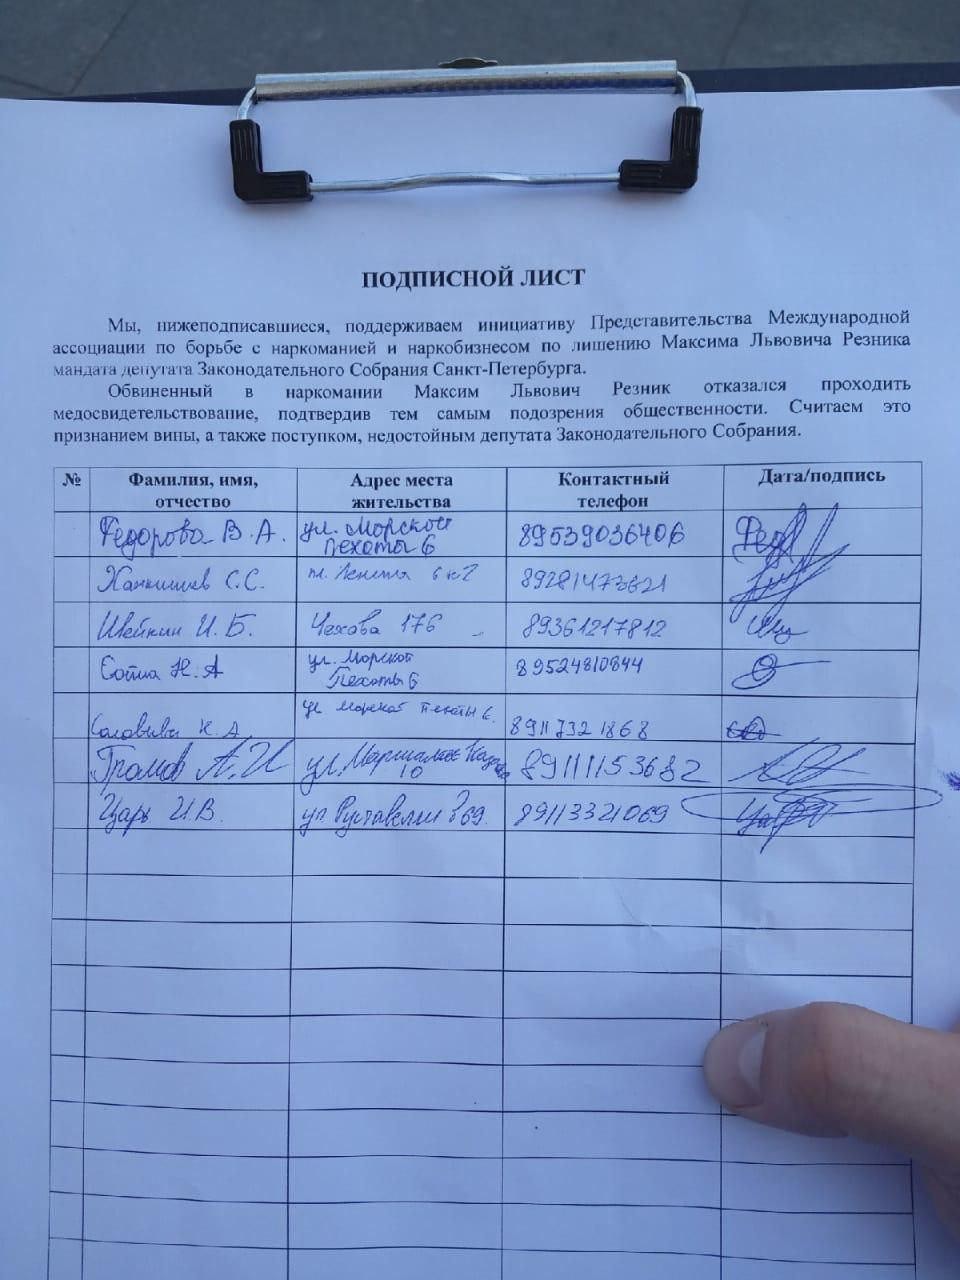 ПОДПИСНОЙ ЛИСТ
Мы, нижеподписавшиеся, поддерживаем инициативу Представительства Международной
ассоциации по борьбе с наркоманией и наркобизнесом по лишению Максима Львовича Резника
мандата депутата Законодательного Собрания Санкт-Петербурга.
Обвиненный в наркомании Максим Львович Резник отказался проходить
медосвидетельствование, подтвердив тем самым подозрения общественности. Считаем это
признанием вины, а также поступком, недостойным депутата Законодательного Собрания.
№ Фамилия, имя, отчество Адрес места жительства Контактный телефон Дата/подпись
Федорова В.А. ул. Морской Пехоты 6 89539036406
С.С. 6 к2 89281473621
Швейкин И.Б. Чехова 176 89361217812
Н.А ул. Морской Пехоты 6 89524810844
К.А. ул Морской Пехоты 6. 8911 732 1868
Громов А.И ул. Маршала 10 89111153682
Царь И.В. ул Руставели 69. 89113321069